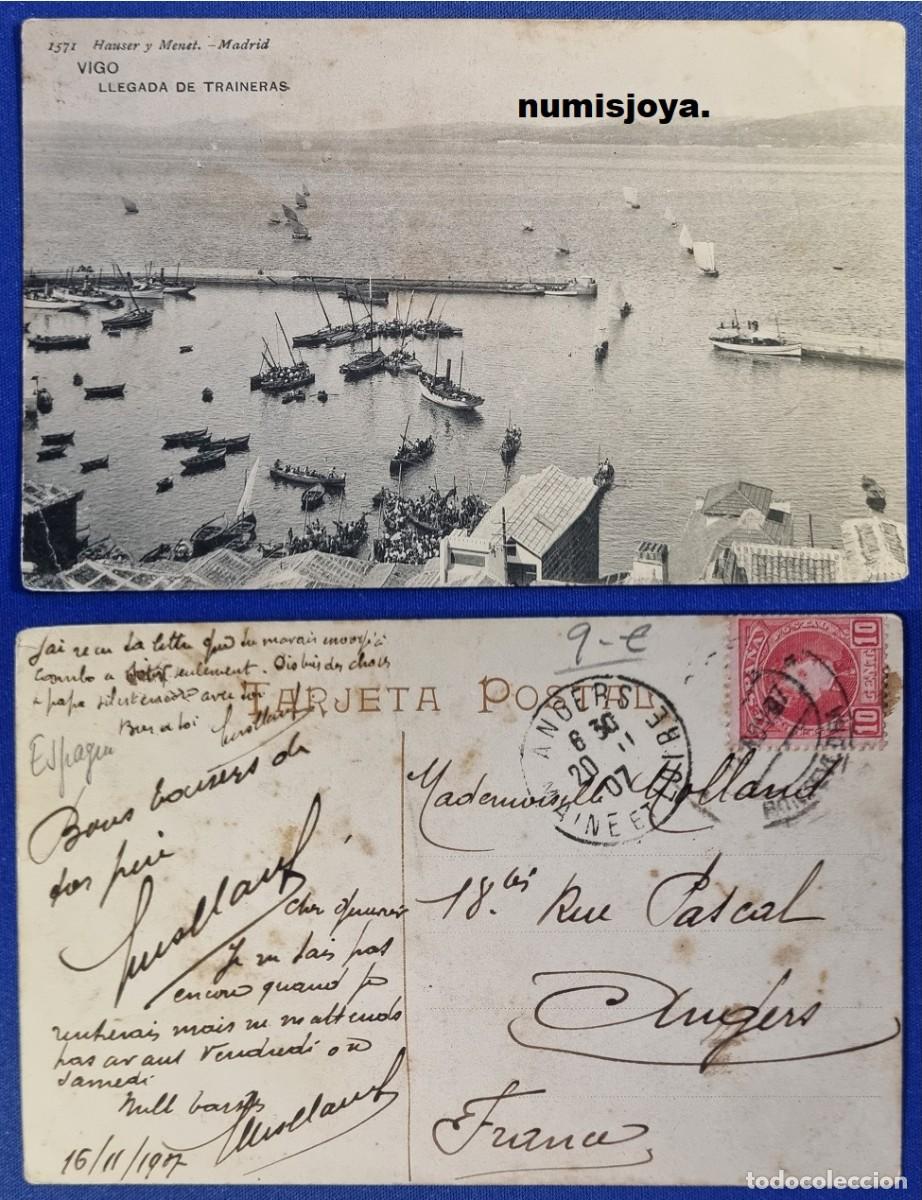 1571 Hauser y Menet. - Madrid
VIGO
LLEGADA DE TRAINERAS
numisjoya.
J'ai reçu ta lettre que tu m'avais envoyé à
Corcubo a seulement. Dis bien des choses
à papa s'il est encore avec toi
Bien à toi
Espagne
9-€
TARJETA POSTAL
Bons baisers de
ton père
cher
Je ne sais pas
encore quand je
rentrerais mais ne m'attends
pas avant Vendredi ou
Samedi
Mill baisers
16/11/1907
ANGERS
6 30
20 11
07
MAINE ET LOIRE
10 CENT. 10
Mademoiselle Molland
18.bis Rue Pascal
Angers
France
todocoleccion